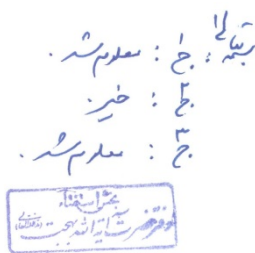 بسمه تعالی
ج۱ : معلوم شد .
ج۲ : خیر.
ج۳ : معلوم شد .
بخش استفتاء
دفتر حضرت آیة الله بهجت